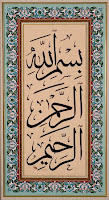 بِسْمِ اللَّهِ
الرَّحْمٰنِ
الرَّحِيمِ